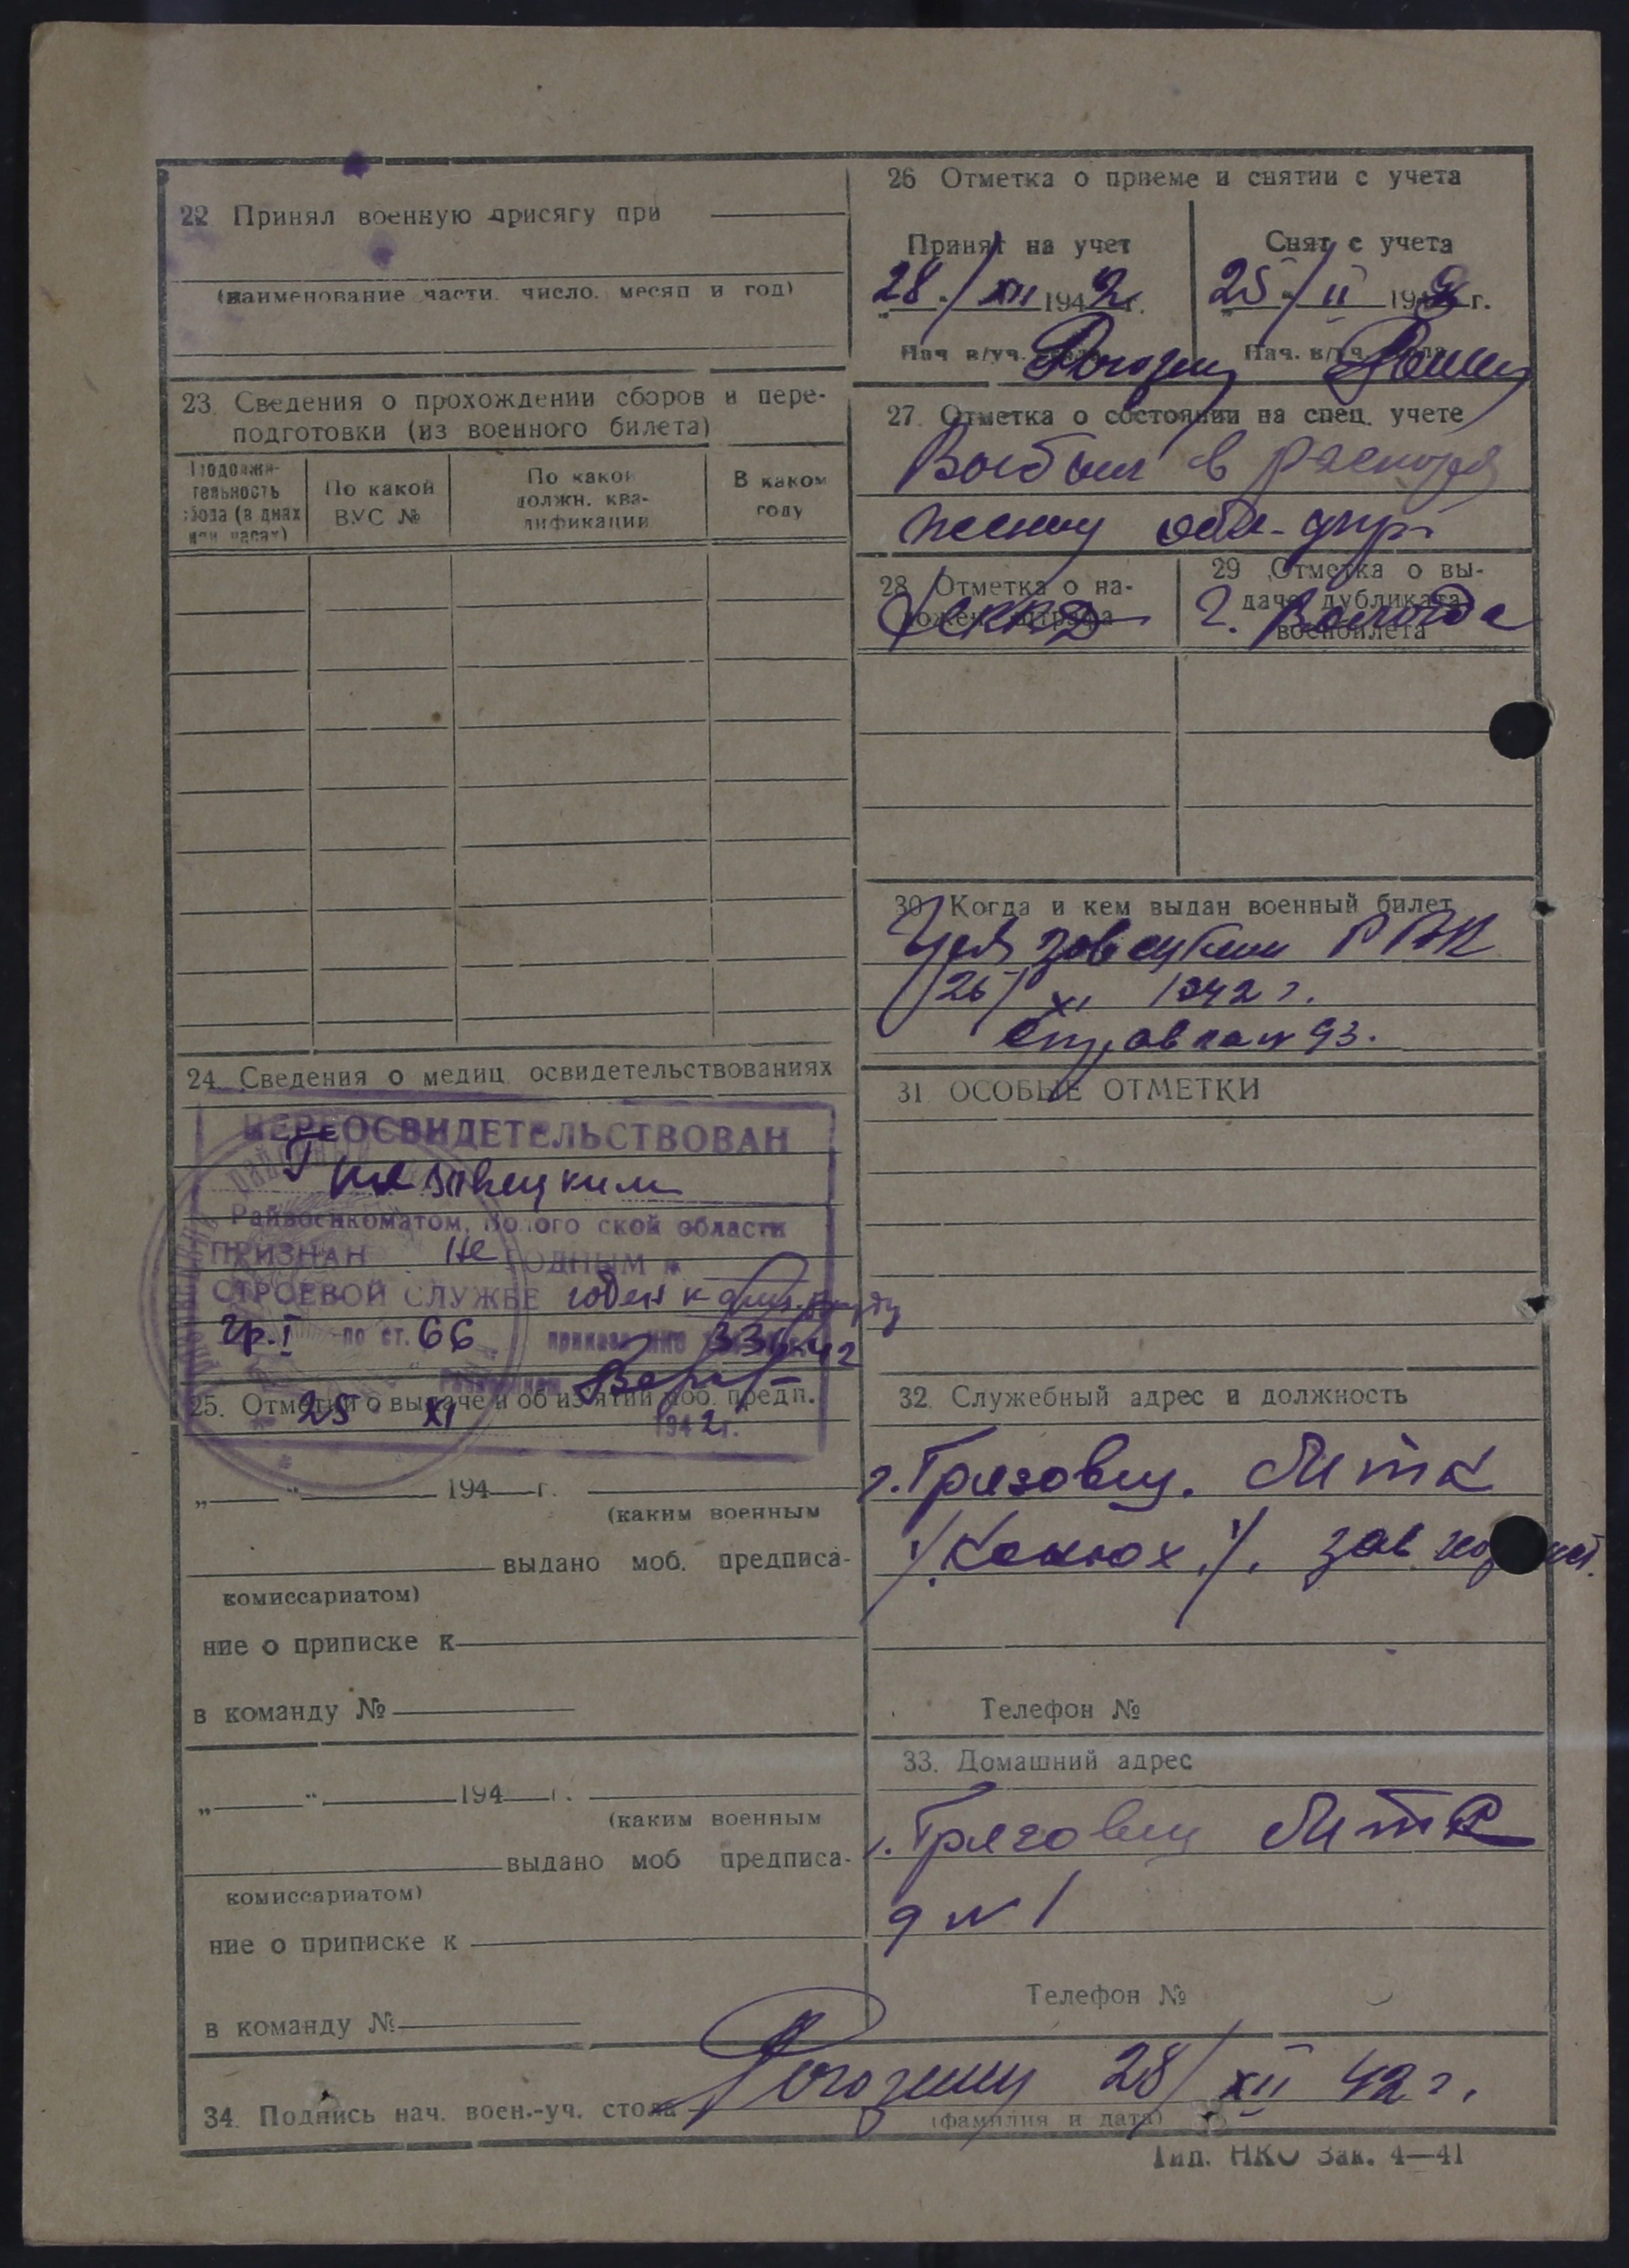 22 Принял военную присягу при
(наименование части. число. месяц и год)
23. Сведения о прохождении сборов и пере-
подготовки (из военного билета)
Продолжи-
тельность
сбора (в днях
или часах)
По какой
ВУС №
По какой
должн. ква-
лификации
В каком
году
24. Сведения о медиц освидетельствованиях
ПЕРЕОСВИДЕТЕЛЬСТВОВАН
Грязовецким
Райвоенкоматом, Вологодской области
ПРИЗНАН не ГОДНЫМ к
СТРОЕВОЙ СЛУЖБЕ годен к физ. труду
гр. I по ст. 66 приказа НКО 336-42
25. Отметки о выдаче и об изъятии моб. предп.
25 XI 1942 г.
„ “ 194 г.
(каким военным
выдано моб. предписа-
комиссариатом)
ние о приписке к
в команду №
„ “ 194 г.
(каким военным
выдано моб предписа-
комиссариатом)
ние о приписке к
в команду №
26 Отметка о приеме и снятии с учета
Принят на учет
28/XII 1942 г.
Нач в/уч. стола Рогозин
Снят с учета
25/II 194 г.
Нач. в/уч. стола
27. Отметка о состоянии на спец. учете
Выбыл в распоря
жение обл-упр
28 Отметка о на-
ложен. штрафа
29 Отметка о вы-
даче дубликата
военбилета
УНКВД г. Вологда
30 Когда и кем выдан военный билет
Грязовецким РВК
26/XI 1942 г.
31 ОСОБЫЕ ОТМЕТКИ
32. Служебный адрес и должность
г. Грязовец. ОИТК
/Конюх/. зав.
Телефон №
33. Домашний адрес
г. Грязовец ОИТК
д № 1
Телефон №
34. Подпись нач. воен.-уч. стола Рогозин 28/XII 42 г.
(фамилия и дата)
Тип. НКО Зак. 4—41